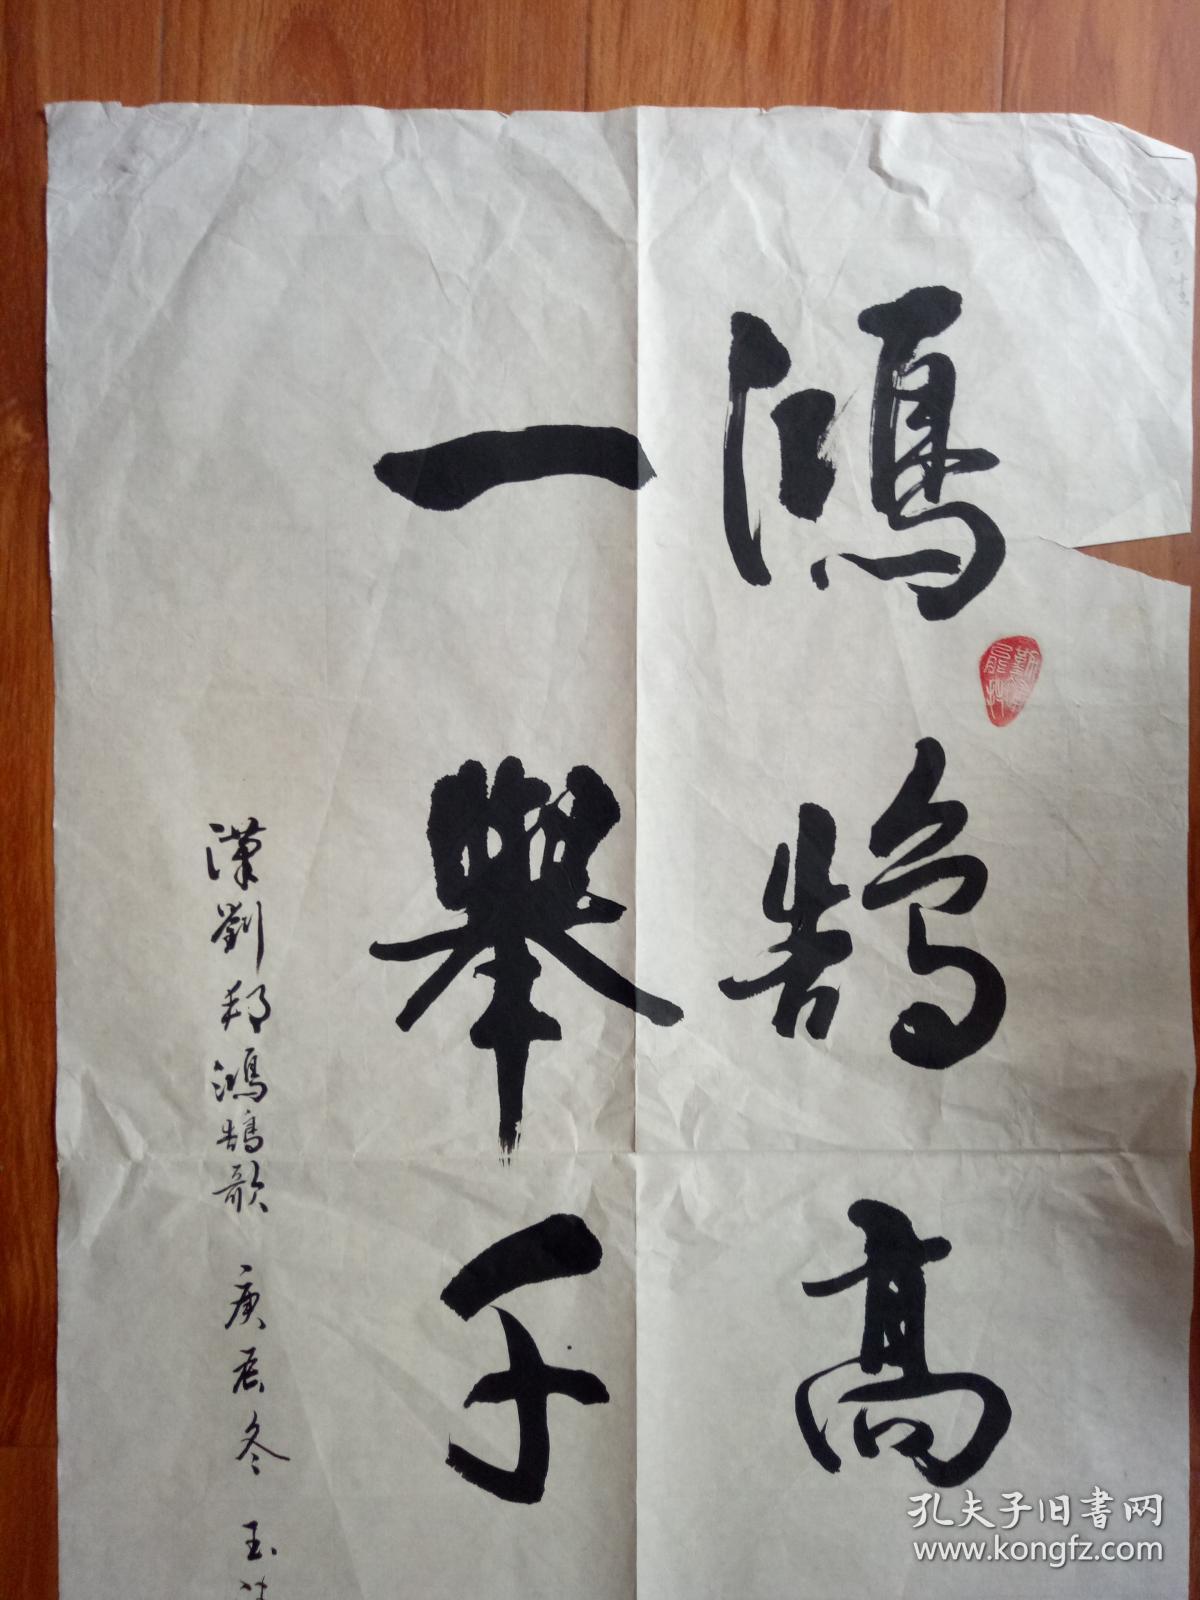 鴻鹄高
一舉千
漢劉邦鴻鹄歌 庚辰冬 玉
孔夫子旧书网
www.kongfz.com